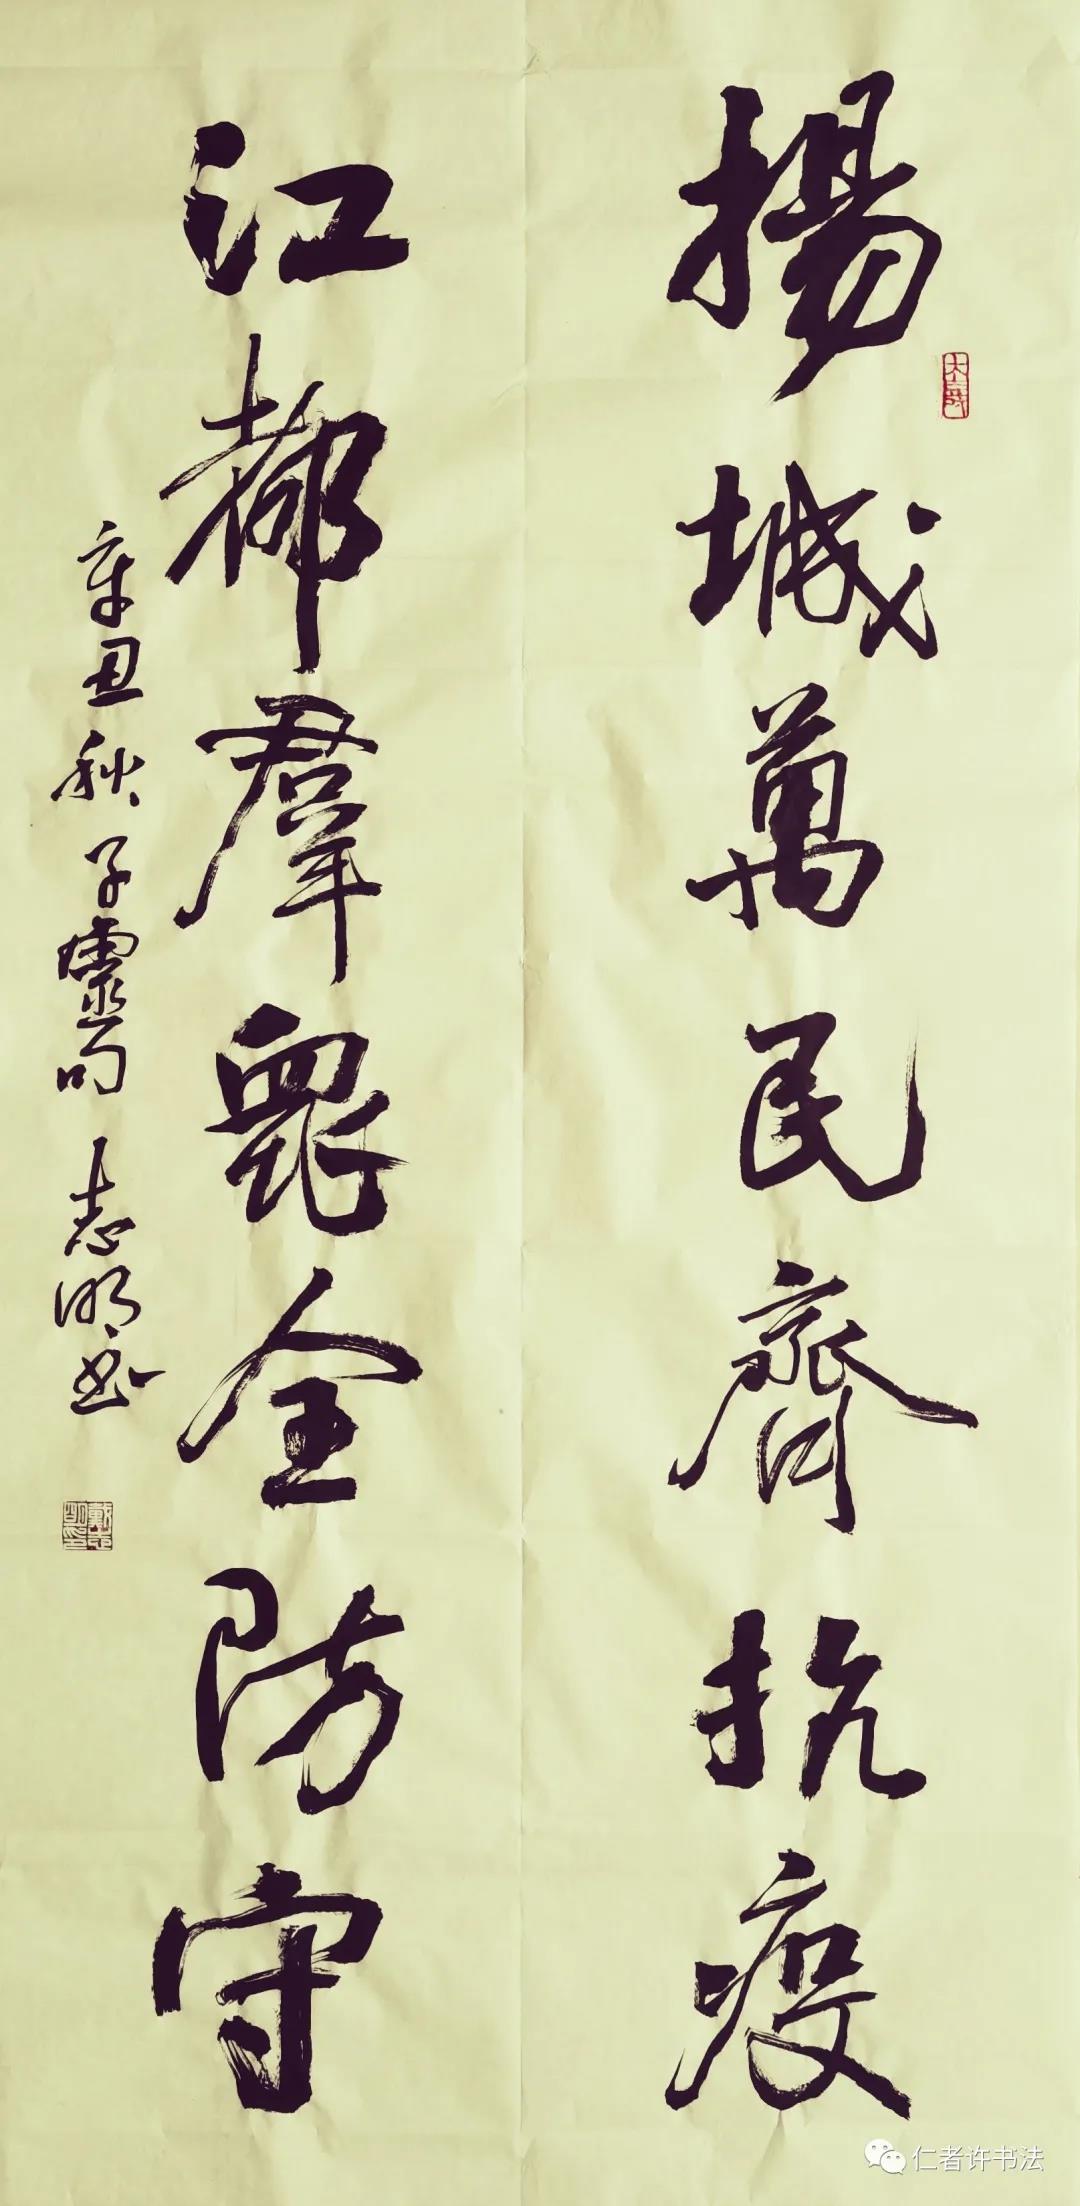 揚城萬民齊抗疫
江都羣眾全防守
辛丑秋子靈句志明书
仁者许书法